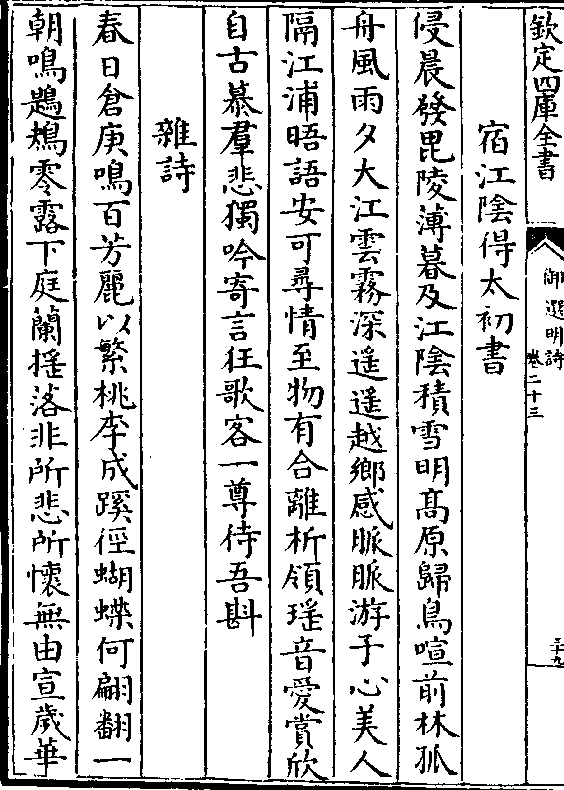 欽定四庫全書
御選明詩
卷二十三
三十九
宿江陰得太初書
侵晨發毘陵薄暮及江陰積雪明高原歸鳥喧前林孤
舟風雨夕大江雲霧深遥遥越鄉感脈脈游子心美人
隔江浦晤語安可尋情至物有合離析領瑶音愛賞欣
自古慕羣悲獨吟寄言狂歌客一尊待吾斟
雜詩
春日倉庚鳴百芳麗以繁桃李成蹊徑蝴蝶何翩翻一
朝鳴鶗鴂零露下庭蘭摇落非所悲所懷無由宣歲華